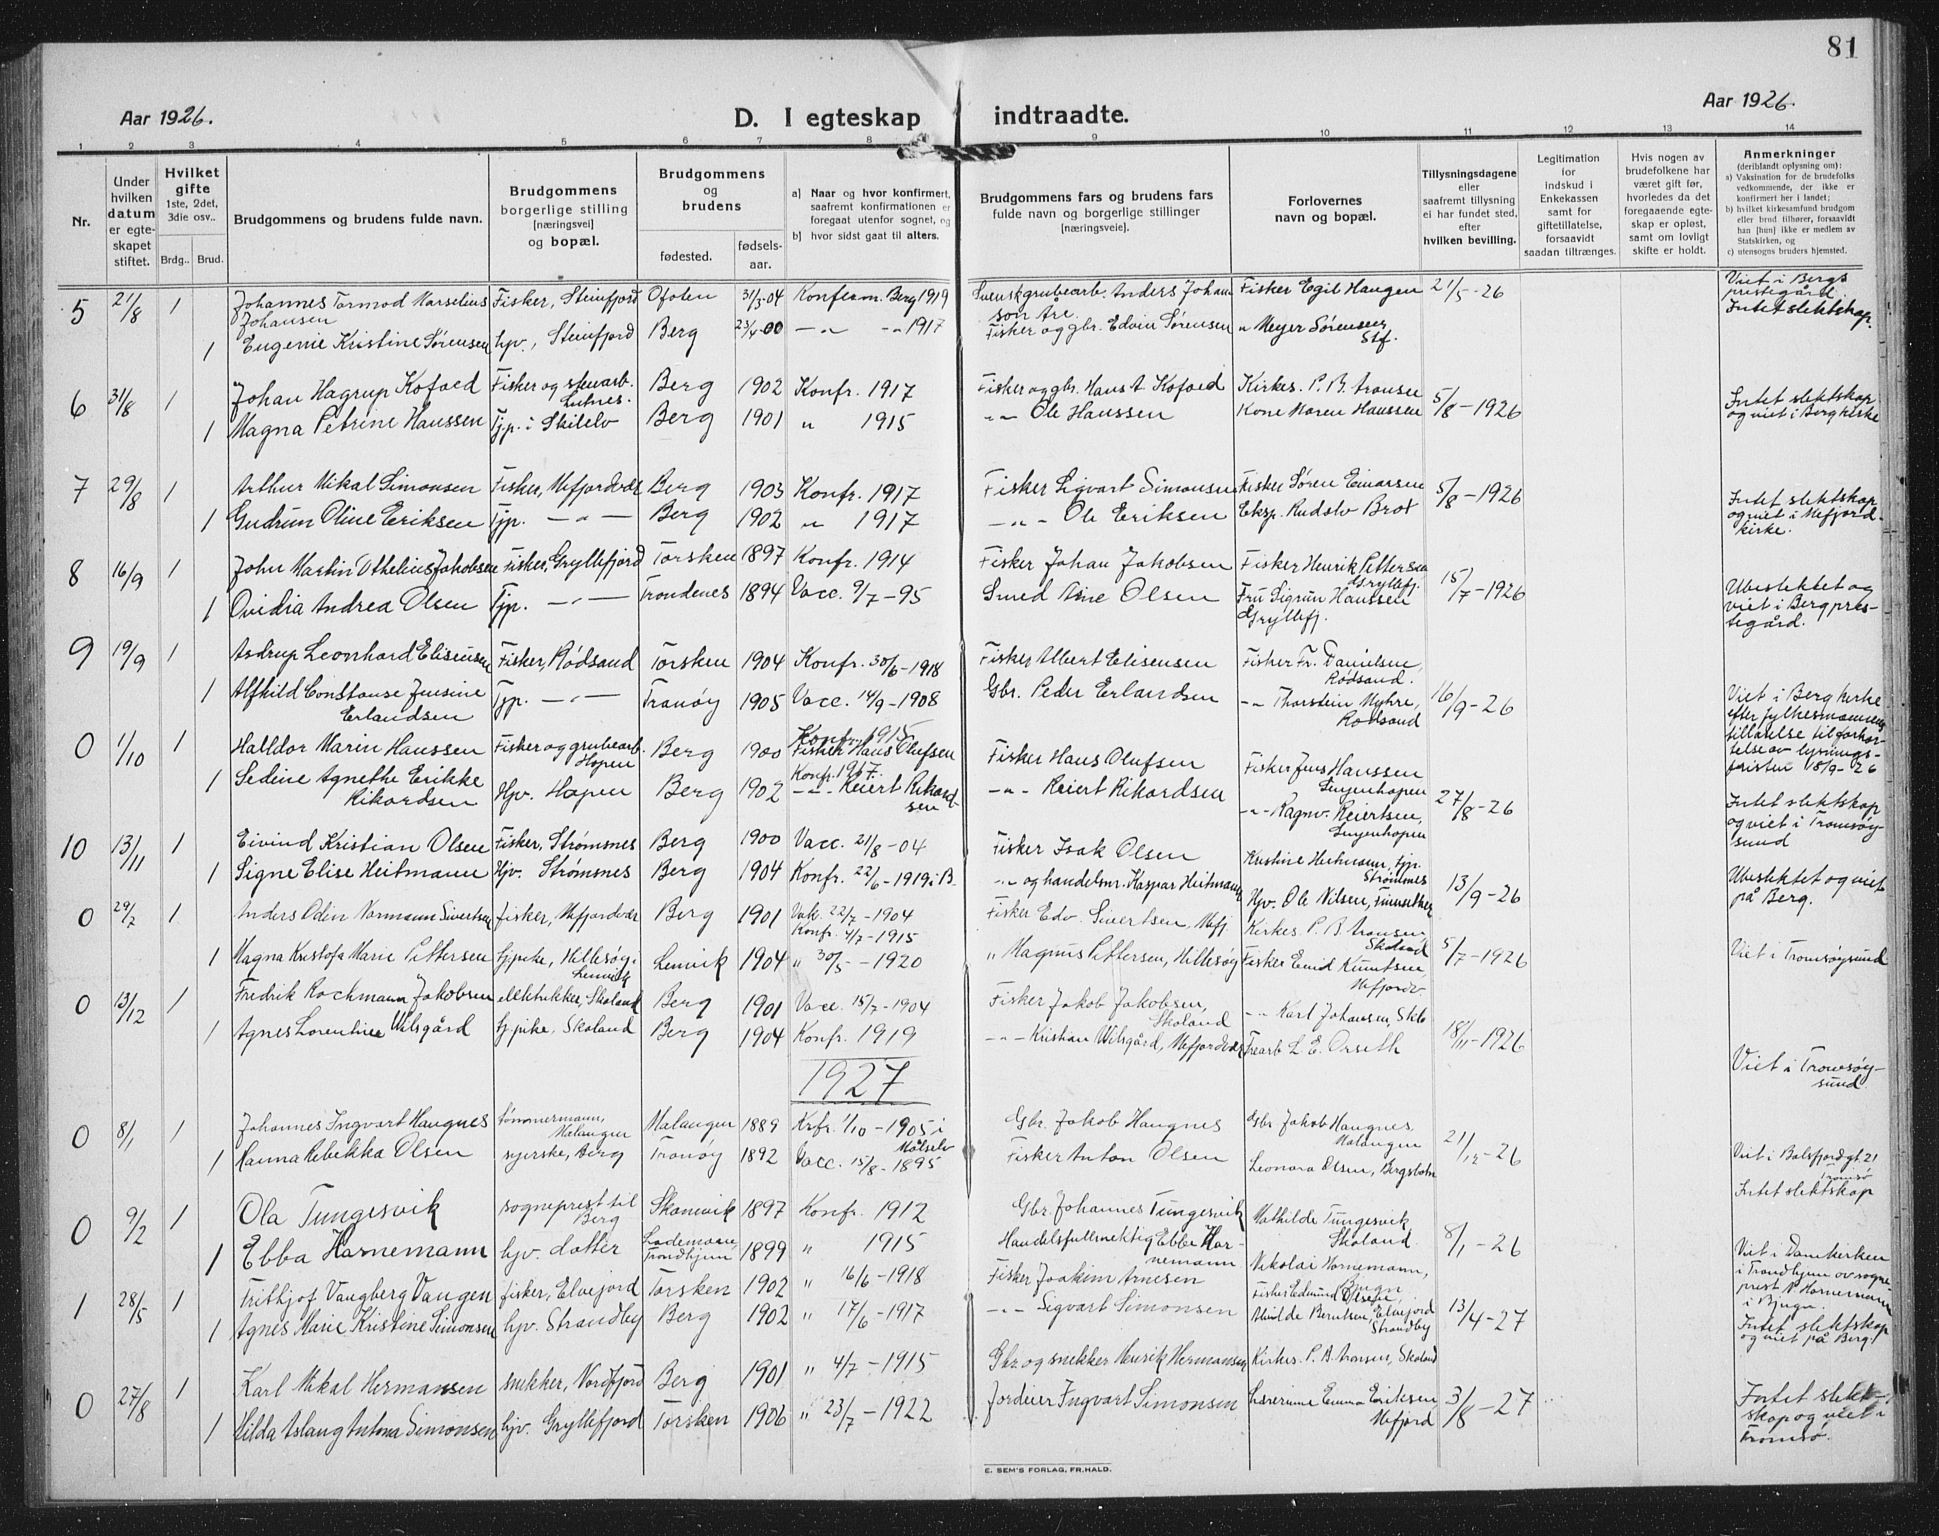 81
Aar 1926.
D. I egteskap indtraadte.
Aar 1926.
1 2 3 4 5 6 7 8 9 10 11 12 13 14
Nr.
Under hvilken datum er egteskapet stiftet.
Hvilket gifte 1ste, 2det, 3die osv..
Brdg.. Brud.
Brudgommens og brudens fulde navn.
Brudgommens borgerlige stilling [næringsvei] og bopæl.
Brudgommens og brudens
fødested.
fødsels-aar.
a) Naar og hvor konfirmert, saafremt konfirmationen er foregaat utenfor sognet, og
b) hvor sidst gaat til alters.
Brudgommens fars og brudens fars fulde navn og borgerlige stillinger [næringsveie].
Forlovernes navn og bopæl.
Tillysningsdagene eller saafremt tillysning ei har fundet sted, efter hvilken bevilling.
Legitimation for indskud i Enkekassen samt for giftetillatelse, forsaavidt saadan tiltrænges.
Hvis nogen av brudefolkene har været gift før, hvorledes da det foregaaende egteskap er opløst, samt om lovligt skifte er holdt.
Anmerkninger (deriblandt oplysning om):
a) Vaksination for de brudefolks vedkommende, der ikke er konfirmert her i landet;
b) hvilket kirkesamfund brudgom eller brud tilhører, forsaavidt han [hun] ikke er medlem av Statskirken, og
c) utensogns bruders hjemsted.
5 21/8 1 Johannes Tormod Marselius Johansen Fisker, Steinfjord Ofoten 31/3-04 Konferm. Berg 1919 Svensk grubearb. Anders Johansson Åre Fisker Egil Haugen 21/5-26 Viet i Bergs prestegård. Intet slektskap.
1 Eugenie Kristine Sørensen hjv., Steinfjord Berg 23/4-00 -"- -"- 1917 Fisker og gbr. Edvin Sørensen " Meyer Sørensen Stf.
6 31/8 1 Johan Hagrup Kofoed Fisker og stenarb. Berg 1902 Konfr. 1917 Fisker og gbr. Hans A Kofoed Kirkes. P. B. Aronsen 5/8-1926 Intet slektskap og viet i Berg kirke
1 Magna Petrine Hanssen Tjp. i Skitelv Berg 1901 " 1915 -"- Ole Hanssen Kone Maren Hanssen
7 29/8 1 Arthur Mikal Simonsen Fisker, Mefjordvær Berg 1903 Konfr. 1917 Fisker Sigvart Simonsen Fisker Søren Einarsen 5/8-1926 Intet slektskap og viet i Mefjordkirke.
1 Gudrun Oline Eriksen Tjp. -"- Berg 1902 " 1917 -"- Ole Eriksen Eksp. Rudolv Brox
8 16/9 1 John Martin Othelius Jakobsen Fisker, Gryllefjord Torsken 1897 Konfr. 1914 Fisker Johan Jakobsen Fisker Henrik Pettersen Gryllefj. 15/7-1926 Ubeslektet og viet i Berg prestegård.
1 Ovidia Andrea Olsen Tjp. -"- Trondenes 1894 Vacc. 9/7-95 Smed Olsen Fru Sigrun Hanssen Gryllefj.
9 19/9 1 Asdrup Leonhard Elisensen Fisker, Rødsand Torsken 1904 Konfr. 30/6-1918 Fisker Albert Elisensen Fisker Fr. Danielsen, Rødsand. 16/9-26 Viet i Berg kirke efter fylkesmannens tillatelse til forkortelse av lysningsfristen 18/9-26
1 Alfhild Constanse Jensine Erlandsen Tjp. -"- Tranøy 1905 Vacc. 14/9-1908 Gbr. Peder Erlandsen -"- Thorstein Myhre, Rødsand
0 1/10 1 Halldor Marin Hanssen Fisker og grubearb. Hopen Berg 1900 Konfr. 1915 Fisker Hans Olufsen Fisker Hans Olufsen Fisker Jens Hanssen Senjenhopen 27/8-26 Intet slektskap og viet i Tromsøysund
1 Sedine Agnethe Erikke Rikardsen Hjv. Hopen Berg 1902 Konfr. 1917. -"- Reiert Rikardsen -"- Reiert Rikardsen -"- Ragnv. Reiertsen, Senjenhopen
10 13/11 1 Eivind Kristian Olsen Fisker, Strømsnes Berg 1900 Vacc. 21/8-04 Fisker Isak Olsen Kristine Heitmann, tjp. Strømnes 13/9-26 Ubeslektet og viet på Berg.
1 Signe Elise Heitmann Hjv. Strømsnes Berg 1904 Konfr. 22/6-1919 i B. -"- og handelsm. Kaspar Heitmann Hjv. Ole Nilsen, Finnsether
0 29/7 1. Anders Odin Normann Sivertsen fisker, Mefjordvær Berg 1901 Vak. 22/7-1904 Konfr. 4/7-1915 Fisker Edv. Sivertsen, Mefj. Kirkes. P. B. Aronsen Skaland 5/7-1926 Viet i Tromsøysund
1 Magna Kristofa Marie Pettersen tjpike, Hillesøy. Lenvik Lenvik 1904 " 30/5-1920 " Magnus Pettersen, Hillesøy Fisker Emid Knutsen Mefjordv
0 13/12 1 Fredrik Rochmann Jakobsen elektrikker, Skaland Berg 1901 Vacc. 15/7-1904 Fisker Jakob Jakobsen, Skaland -"- Karl Johansen, Sk 18/11-1926 Viet i Tromsøysund.
1 Agnes Lorentine Wilsgård tjpike, Skaland Berg 1904 Konfr. 1919 -"- Kristian Wilsgård, Mefjordvær Trearb L. E. Orseth
1927
0 8/1 1 Johannes Ingvart Haugnes tømmermann, Malangen Malangen 1889 Krfr. 1/10-1905 i Målselv Gbr. Jakob Haugnes Gbr. Jakob Haugnes, Malangen 21/12-26 Viet i Balsfjord gt. 21 Tromsø
1 Hanna Rebekka Olsen syerske, Berg Tranøy 1892 Vacc. 15/8-1895 Fisker Anton Olsen Leonora Olsen, Bergsbotn Intet slektskap
0 9/2 1 Ola Tungesvik sogneprest til Berg Skånevik 1897 Konfr. 1912 Gbr. Johannes Tungesvik Mathilde Tungesvik Skaland. 8/1-26 Viet i Domkirken i Trondhjem av sogneprest N Hornemann i Bjugn.
1 Ebba Hornemann hjv. datter Lademoen, Trondhjem 1899 " 1915 Handelsfullmektig Ebbe Hornemann Nikolai Hornemann, Bjugn
1 28/5 1 Trithjof Vangberg Vangen fisker, Elvejord Torsken 1902 " 16/6-1918 Fisker Joakim Arnesen Fisker Edmund Olsen, Elvejord 13/4-27 Intet slektskap og viet på Berg.
1 Agnes Marie Kristine Simonsen hjv. Strandby Berg 1902 " 17/6-1917 -"- Sigvart Simonsen Berntsen, Strandby
0 27/8 1 Karl Mikal Hermansen snekker, Nordfjord Berg 1901 " 4/7-1915 Gbr. og snekker Henrik Hermansen Kirkes. P. B. Aronsen, Skaland 3/8-27 Intet slektskap og viet i Tromsø.
1 Hilda Aslaug Antona Simonsen hjv. Gryllefjord Torsken 1906 " 23/7-1922 Jordeier Ingvart Simonsen Lærerinne Emma Eriksen Mefjord
E. SEM'S FORLAG, FR.HALD.